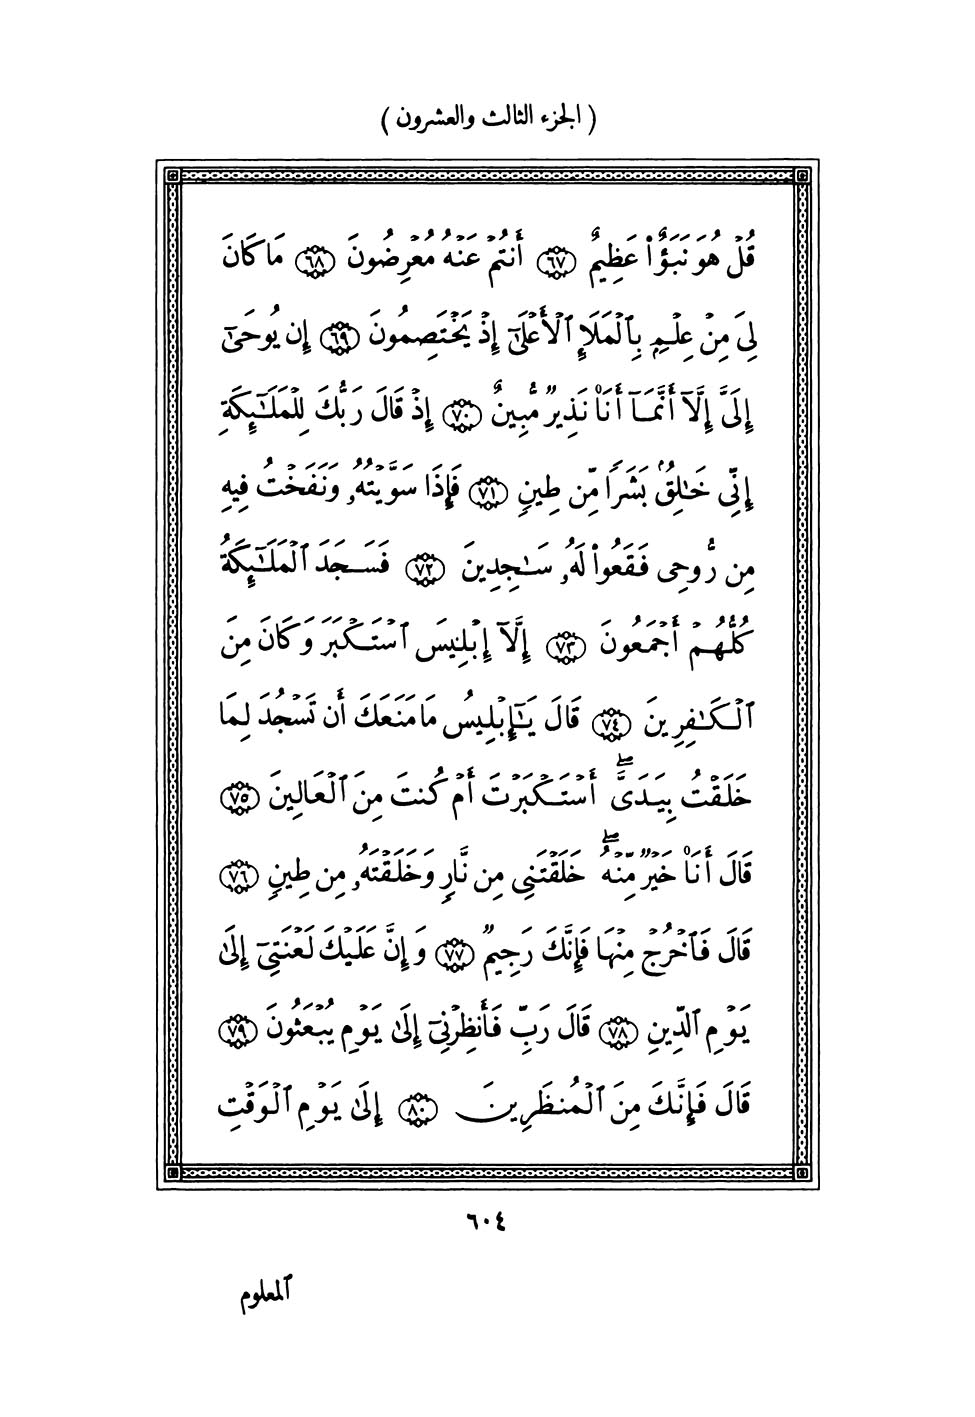 ( الجزء الثالث والعشرون )
قُلْ هُوَ نَبَؤٌا۟ عَظِيمٌ ٦٧ أَنتُمْ عَنْهُ مُعْرِضُونَ ٦٨ مَا كَانَ
لِىَ مِنْ عِلْمٍۭ بِٱلْمَلَإِ ٱلْأَعْلَىٰٓ إِذْ يَخْتَصِمُونَ ٦٩ إِن يُوحَىٰٓ
إِلَىَّ إِلَّآ أَنَّمَآ أَنَا۠ نَذِيرٌ مُّبِينٌ ٧٠ إِذْ قَالَ رَبُّكَ لِلْمَلَـٰٓئِكَةِ
إِنِّى خَـٰلِقٌۢ بَشَرًا مِّن طِينٍ ٧١ فَإِذَا سَوَّيْتُهُۥ وَنَفَخْتُ فِيهِ
مِن رُّوحِى فَقَعُوا۟ لَهُۥ سَـٰجِدِينَ ٧٢ فَسَجَدَ ٱلْمَلَـٰٓئِكَةُ
كُلُّهُمْ أَجْمَعُونَ ٧٣ إِلَّآ إِبْلِيسَ ٱسْتَكْبَرَ وَكَانَ مِنَ
ٱلْكَـٰفِرِينَ ٧٤ قَالَ يَـٰٓإِبْلِيسُ مَا مَنَعَكَ أَن تَسْجُدَ لِمَا
خَلَقْتُ بِيَدَىَّۖ أَسْتَكْبَرْتَ أَمْ كُنتَ مِنَ ٱلْعَالِينَ ٧٥
قَالَ أَنَا۠ خَيْرٌ مِّنْهُۖ خَلَقْتَنِى مِن نَّارٍ وَخَلَقْتَهُۥ مِن طِينٍ ٧٦
قَالَ فَٱخْرُجْ مِنْهَا فَإِنَّكَ رَجِيمٌ ٧٧ وَإِنَّ عَلَيْكَ لَعْنَتِىٓ إِلَىٰ
يَوْمِ ٱلدِّينِ ٧٨ قَالَ رَبِّ فَأَنظِرْنِىٓ إِلَىٰ يَوْمِ يُبْعَثُونَ ٧٩
قَالَ فَإِنَّكَ مِنَ ٱلْمُنظَرِينَ ٨٠ إِلَىٰ يَوْمِ ٱلْوَقْتِ
٦٠٤
ٱلمعلوم